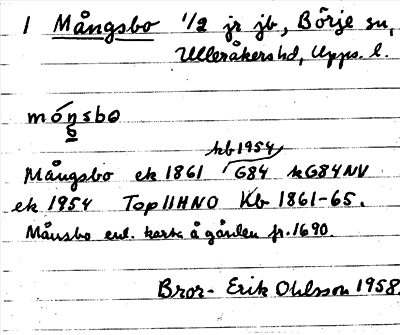 1 Mångsbo 1/2 jr jb, Börje sn,
Ulleråkers hd, Upps. l.
mónsbo
s
kb 1954
Mångsbo ek 1861 G84 kG84NV
ek 1954 Top11HNO Kb 1861-65.
Månsbo enl. karta å gården fr. 1690.
Bror-Erik Ohlsson 1958.